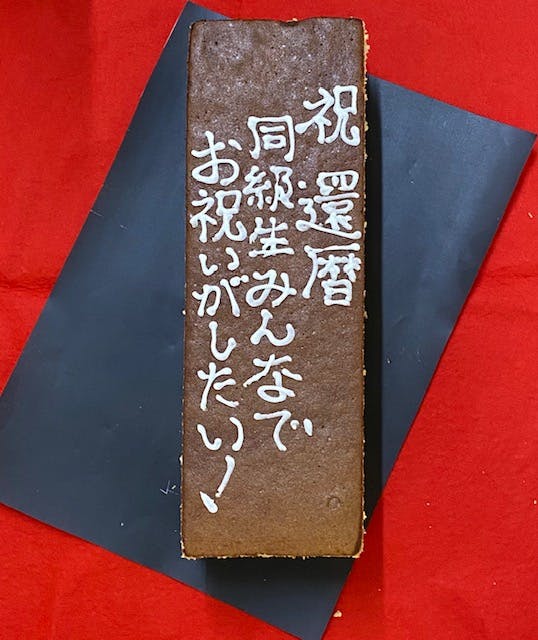 祝 還暦
同級生みんなで
お祝いがしたい!